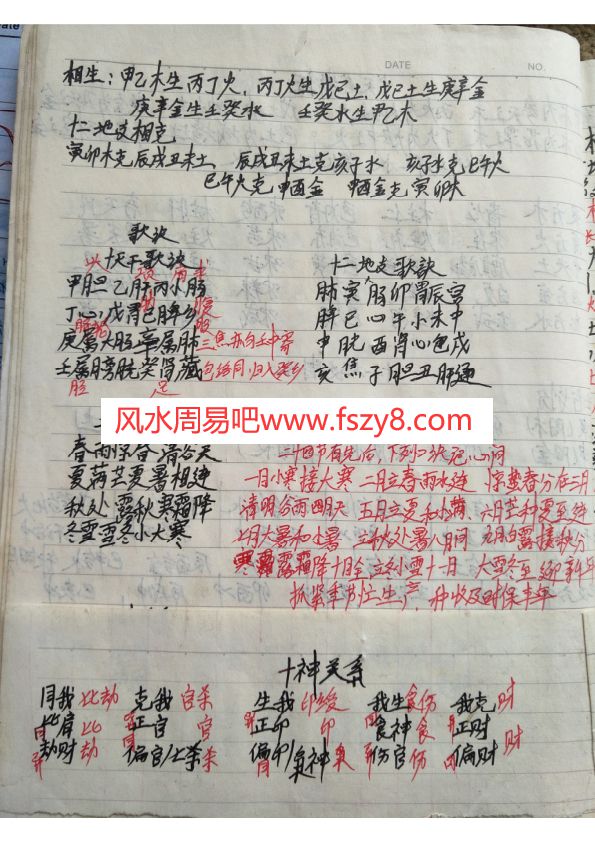 DATE
NO.
相生：甲乙木生丙丁火，丙丁火生戊己土，戊己土生庚辛金
庚辛金生壬癸水　壬癸水生甲乙木
十二地支相克
寅卯木克辰戌丑未土，辰戌丑未土克亥子水，亥子水克巳午火
巳午火克申酉金　申酉金克寅卯木
歌诀
十天干歌诀
甲胆乙肝丙小肠
丁心戊胃己脾乡
庚属大肠辛属肺
三焦亦向壬中寄
壬属膀胱癸肾藏
包络同归入癸乡
十二地支歌訣
肺寅肠卯胃辰宫
脾巳心午小未中
申胱酉肾心包戌
亥焦子胆丑肝通
风水周易吧www.fszy8.com
春雨惊春清谷天
夏满芒夏暑相连
秋处露秋寒霜降
冬雪雪冬小大寒
二十四节有先后，下列口诀记心间
一月小寒接大寒　二月立春雨水连　惊蛰春分在三月
清明谷雨四月天　五月立夏和小满，六月芒种夏至连
七月大暑和小暑　立秋处暑八月间　九月白露接秋分
寒露霜降十月全　立冬小雪十一月　大雪冬至迎新年
抓紧季节忙生产，种收及时保丰年
十神关系
同我 比劫　克我 官杀　生我 印绶　我生 食伤　我克 财
比肩 比　正官 官　正印 印　食神 食　正财
劫财 劫　偏官/七杀 杀　偏印/枭神 枭　伤官 伤　偏财 财